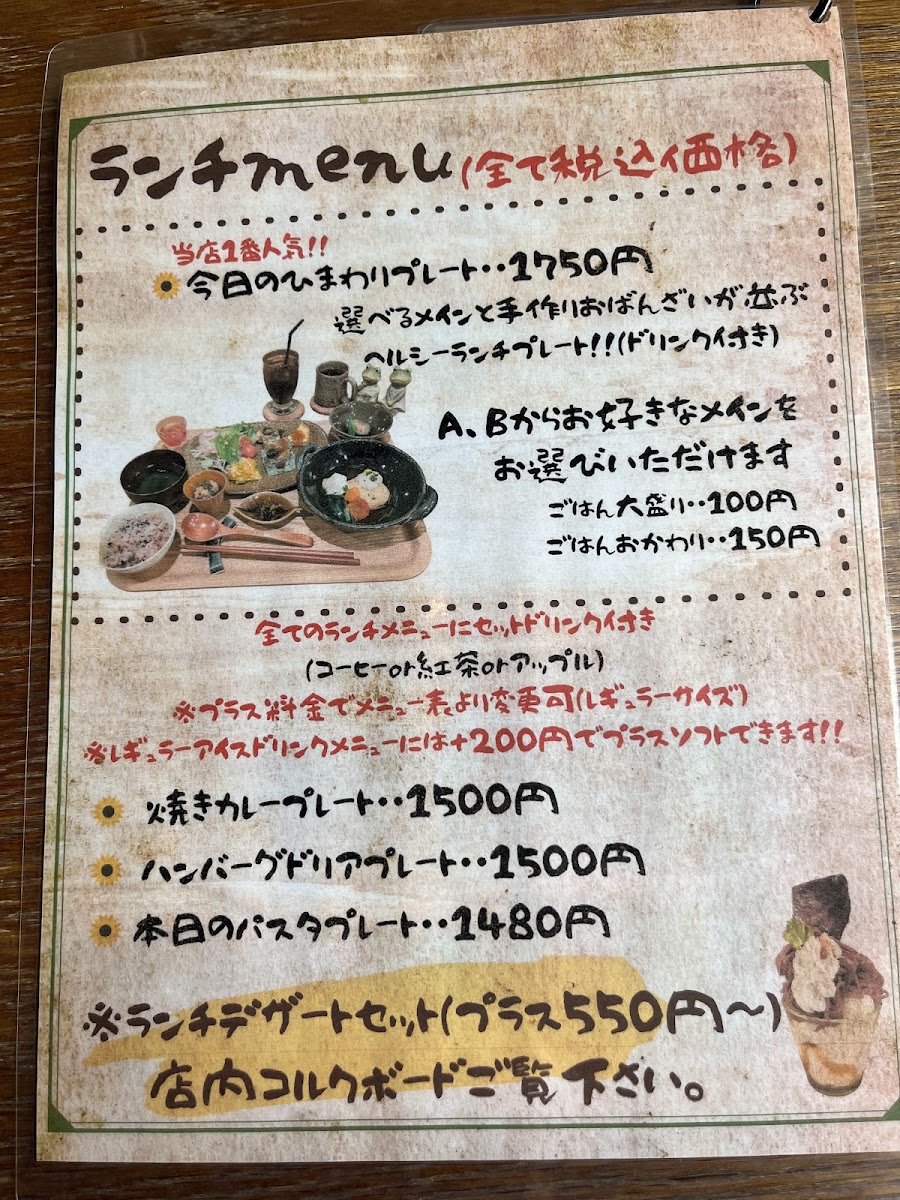 ランチmenu(全て税込価格)
当店1番人気!!
今日のひまわりプレート‥1750円
選べるメインと手作りおばんざいが並ぶ
ヘルシーランチプレート!!(ドリンク付き)
A、Bからお好きなメインを
お選びいただけます
ごはん大盛り‥100円
ごはんおかわり‥150円
全てのランチメニューにセットドリンク付き
(コーヒーor紅茶orアップル)
※プラス料金でメニュー表より変更可(レギュラーサイズ)
※レギュラーアイスドリンクメニューには+200円でプラスソフトできます!!
焼きカレープレート‥1500円
ハンバーグドリアプレート‥1500円
本日のパスタプレート‥1480円
※ランチデザートセット(プラス550円〜)
店内コルクボードご覧下さい。